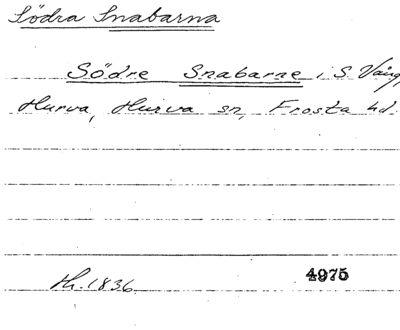 Södra Snabarna
Södre Snabarne i S. Vång,
Hurva, Hurva sn, Frosta hd.
Lh. 1836 4975